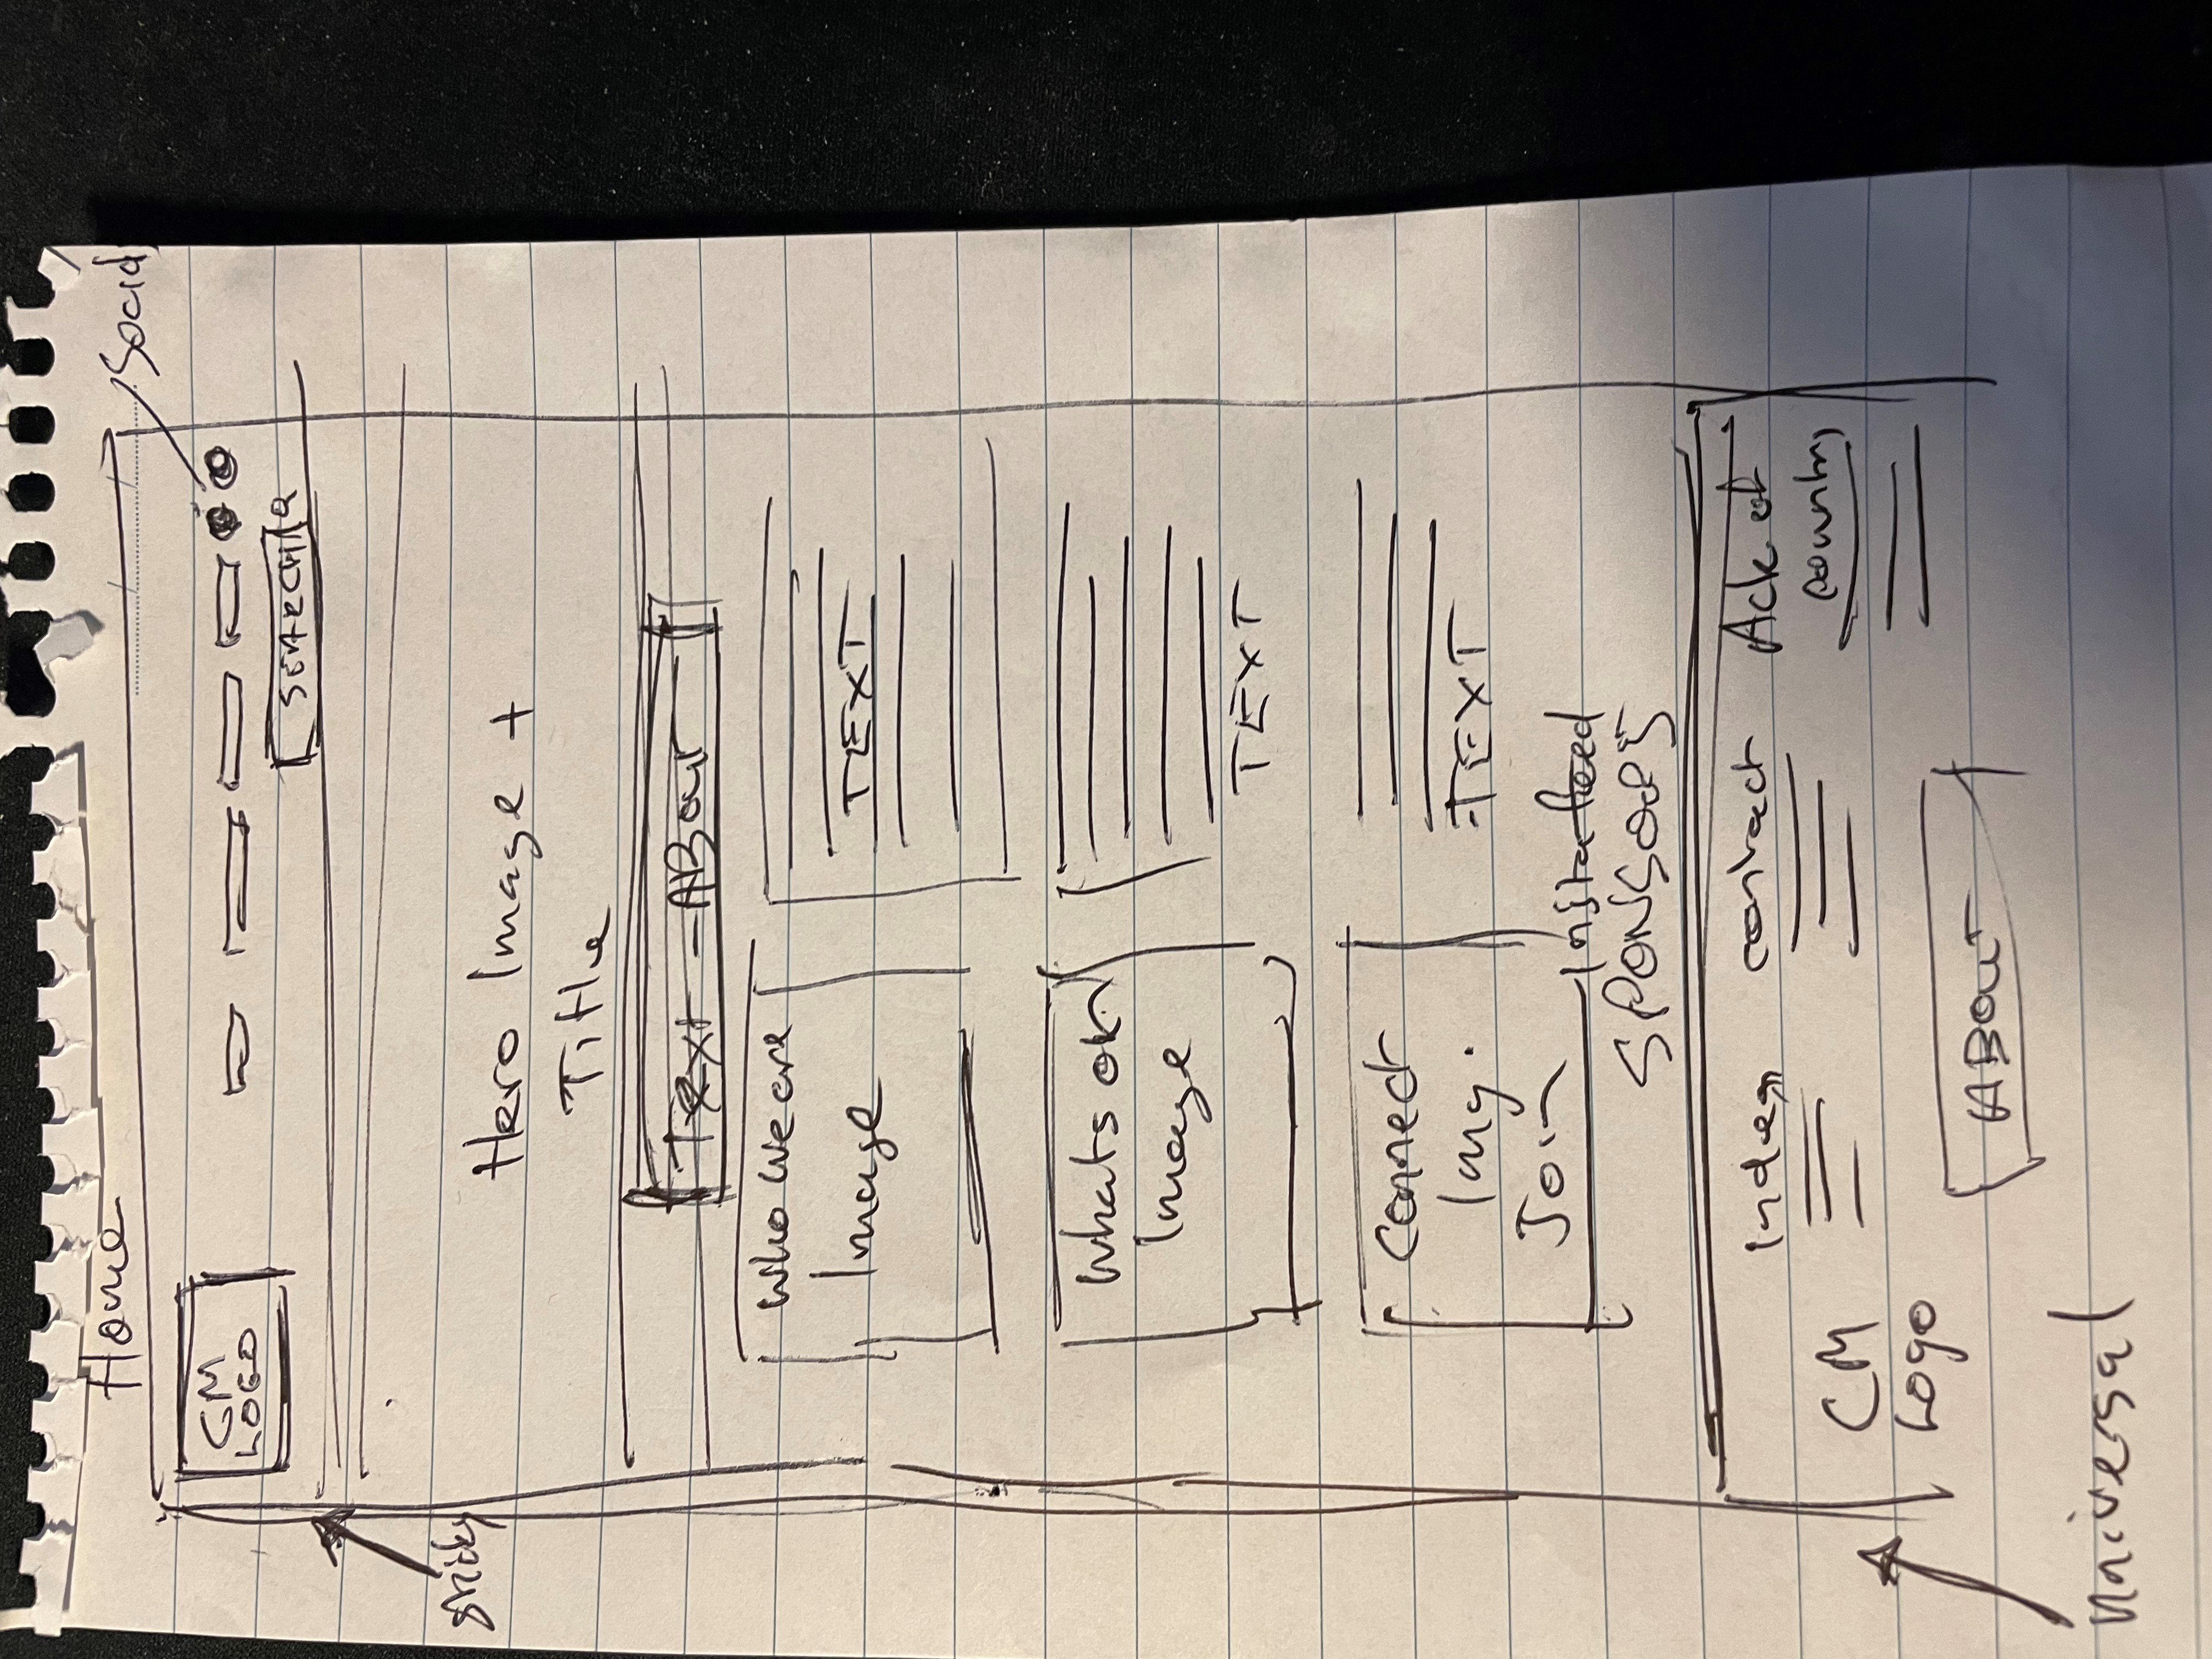 Home
Social
CM
LOGO
SEARCH
sticky
Hero Image +
Title
Text - About
Who we are
Image
TEXT
Whats on
Image
TEXT
Connect
Img.
Join
TEXT
Insta feed
SPONSORS
CM
Logo
Index
contact
Ack of
country
ABout
universal